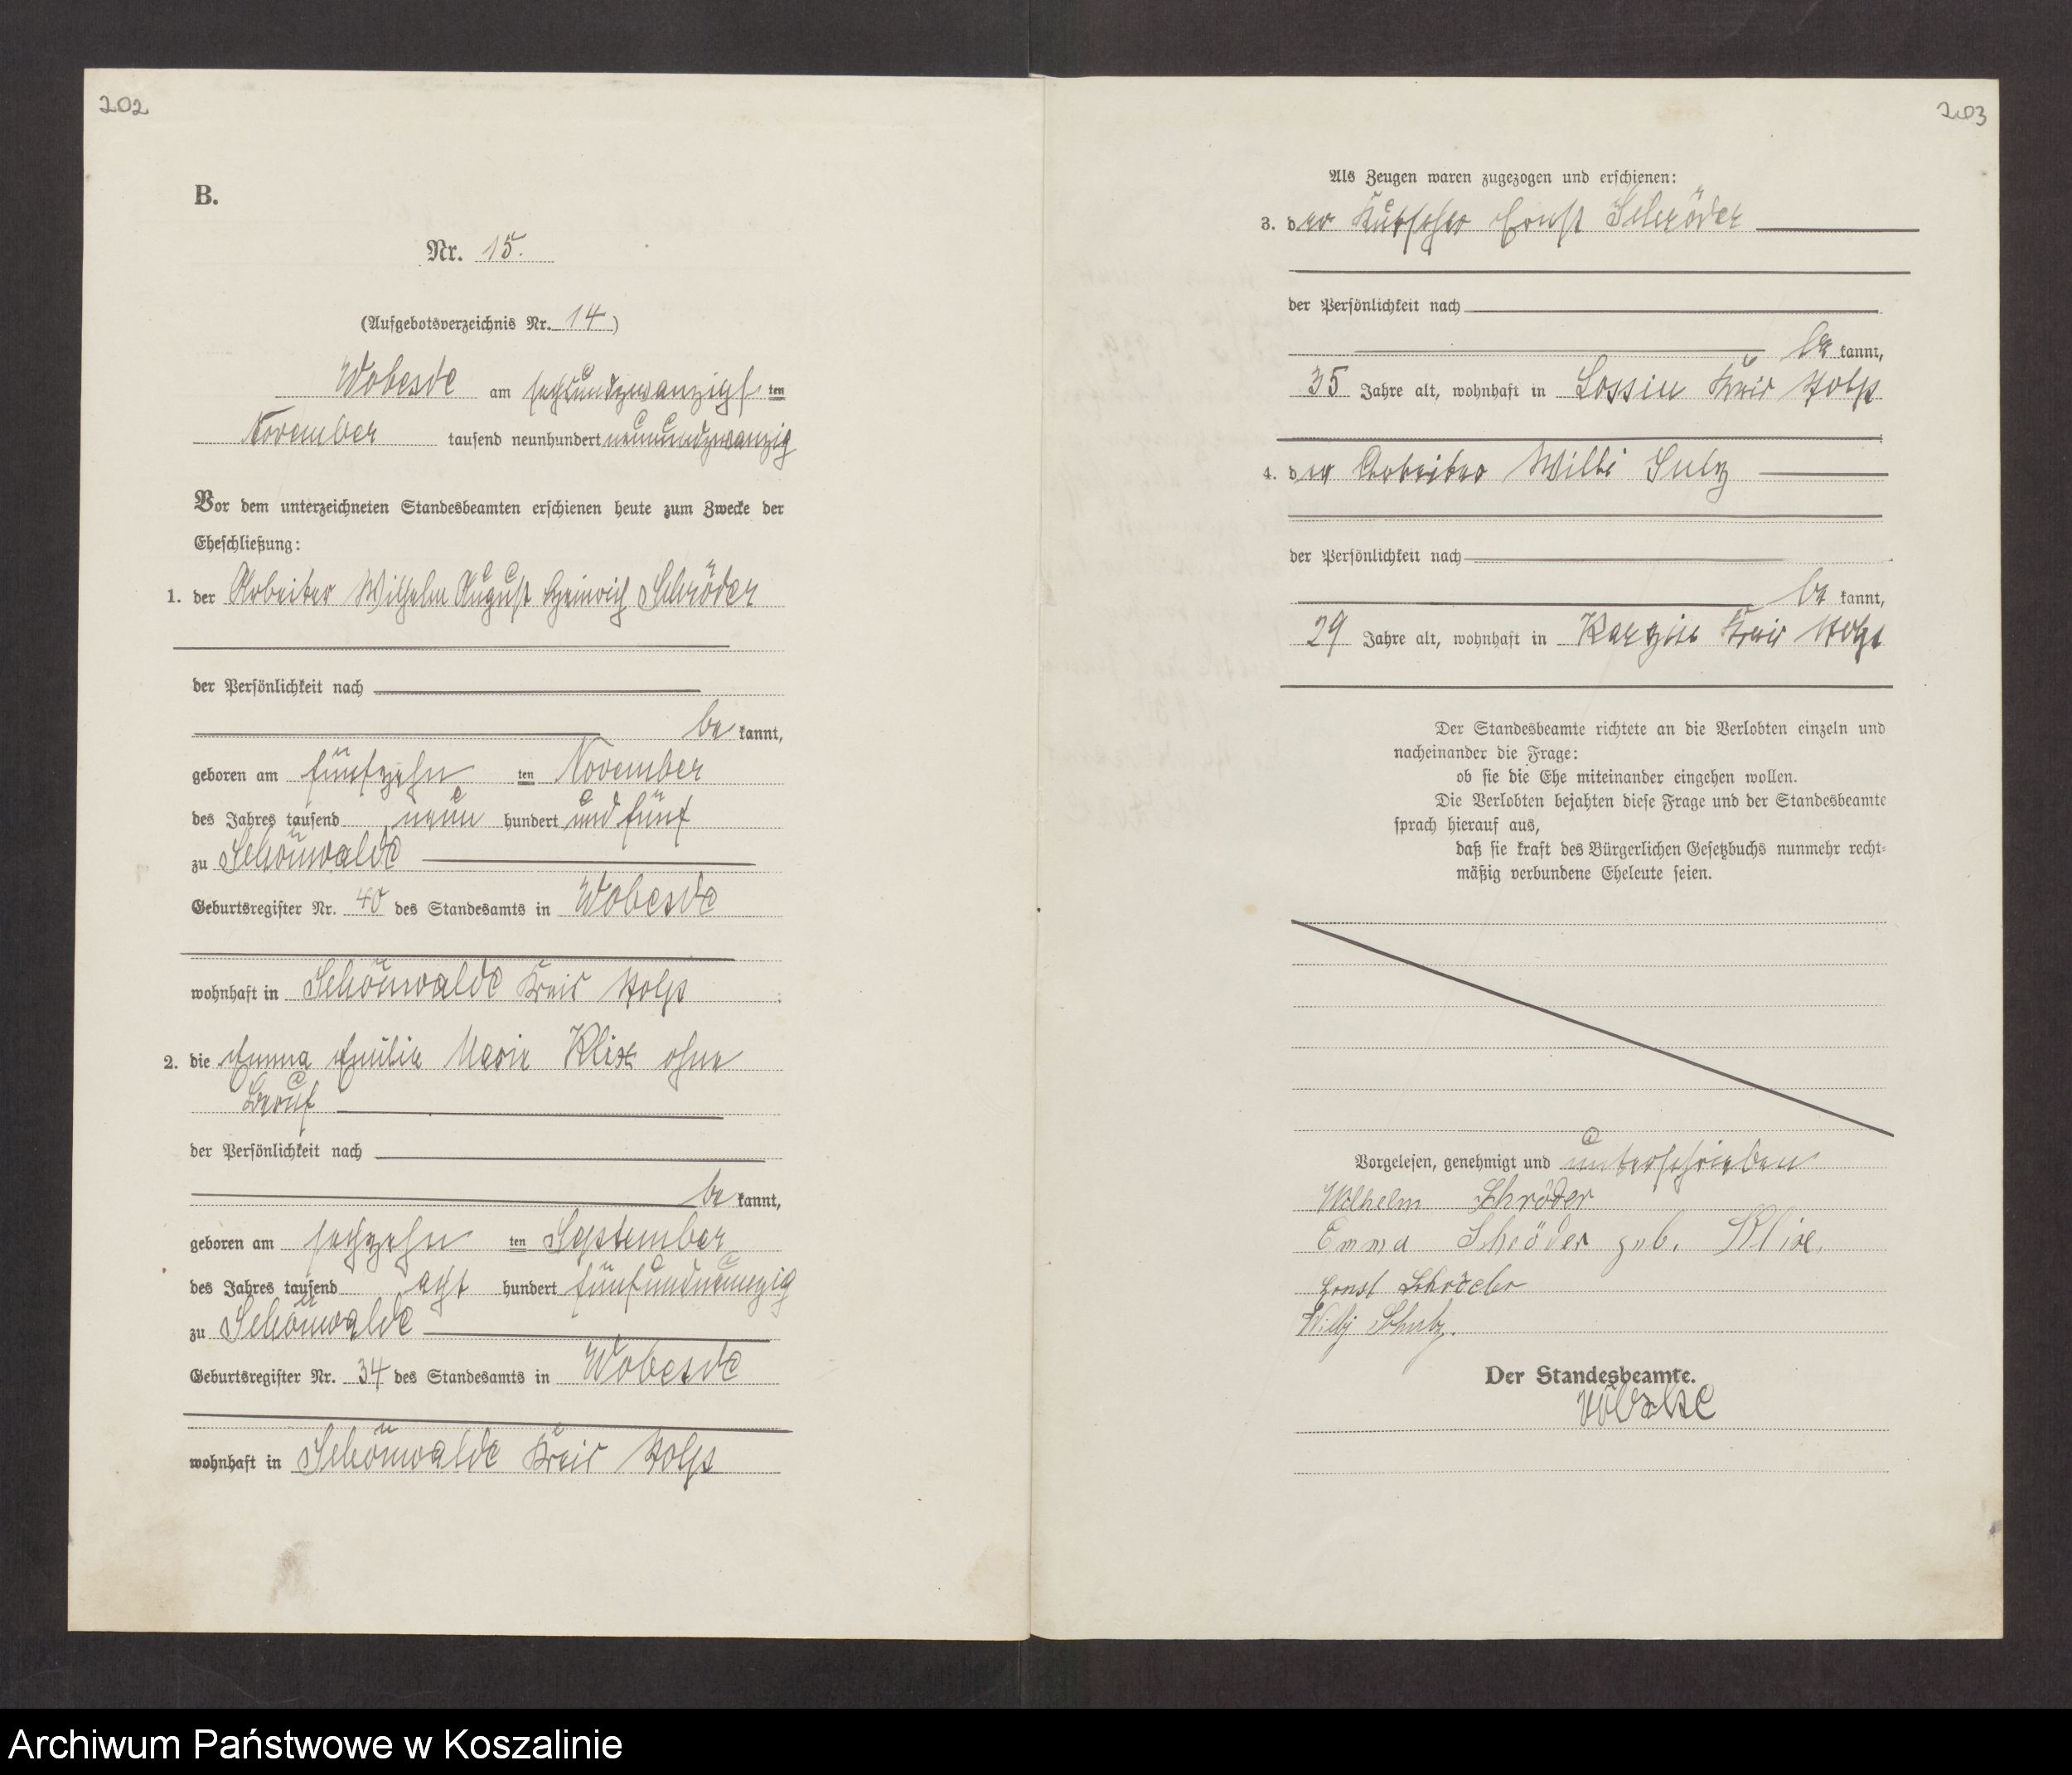 202
B.
Nr. 15.
(Aufgebotsverzeichnis Nr. 14)
Wobesde am sechsundzwanzigsten
November tausend neunhundert neunundzwanzig
Vor dem unterzeichneten Standesbeamten erschienen heute zum Zwecke der
Eheschließung:
1. der Arbeiter Wilhelm August Heinrich Schröder
der Persönlichkeit nach
be kannt,
geboren am fünfzehn ten November
des Jahres tausend neun hundert und fünf
zu Schönwalde
Geburtsregister Nr. 40 des Standesamts in Wobesde
wohnhaft in Schönwalde Kreis Stolp
2. die Emma Emilie Marie Klix ohne
Beruf
der Persönlichkeit nach
be kannt,
geboren am sechzehn ten September
des Jahres tausend acht hundert fünfundneunzig
zu Schönwalde
Geburtsregister Nr. 34 des Standesamts in Wobesde
wohnhaft in Schönwalde Kreis Stolp
203
Als Zeugen waren zugezogen und erschienen:
3. der Kutscher Ernst Schröder
der Persönlichkeit nach
be kannt,
35 Jahre alt, wohnhaft in Lossin Kreis Stolp
4. der Arbeiter Willi
der Persönlichkeit nach
be kannt,
29 Jahre alt, wohnhaft in Karzin Kreis Stolp
Der Standesbeamte richtete an die Verlobten einzeln und
nacheinander die Frage:
ob sie die Ehe miteinander eingehen wollen.
Die Verlobten bejahten diese Frage und der Standesbeamte
sprach hierauf aus,
daß sie kraft des Bürgerlichen Gesetzbuchs nunmehr recht-
mäßig verbundene Eheleute seien.
Vorgelesen, genehmigt und unterschrieben
Wilhelm Schröder
Emma Schröder geb. Klix.
Ernst Schröder
Der Standesbeamte.
Archiwum Państwowe w Koszalinie